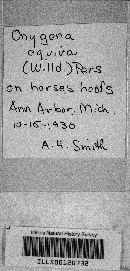 Onygena
equina
(Willd.) Pers
on horses hoofs
Ann Arbor, Mich
10-15-1930
A. H. Smith
Illinois Natural History Survey
ILLS00120732